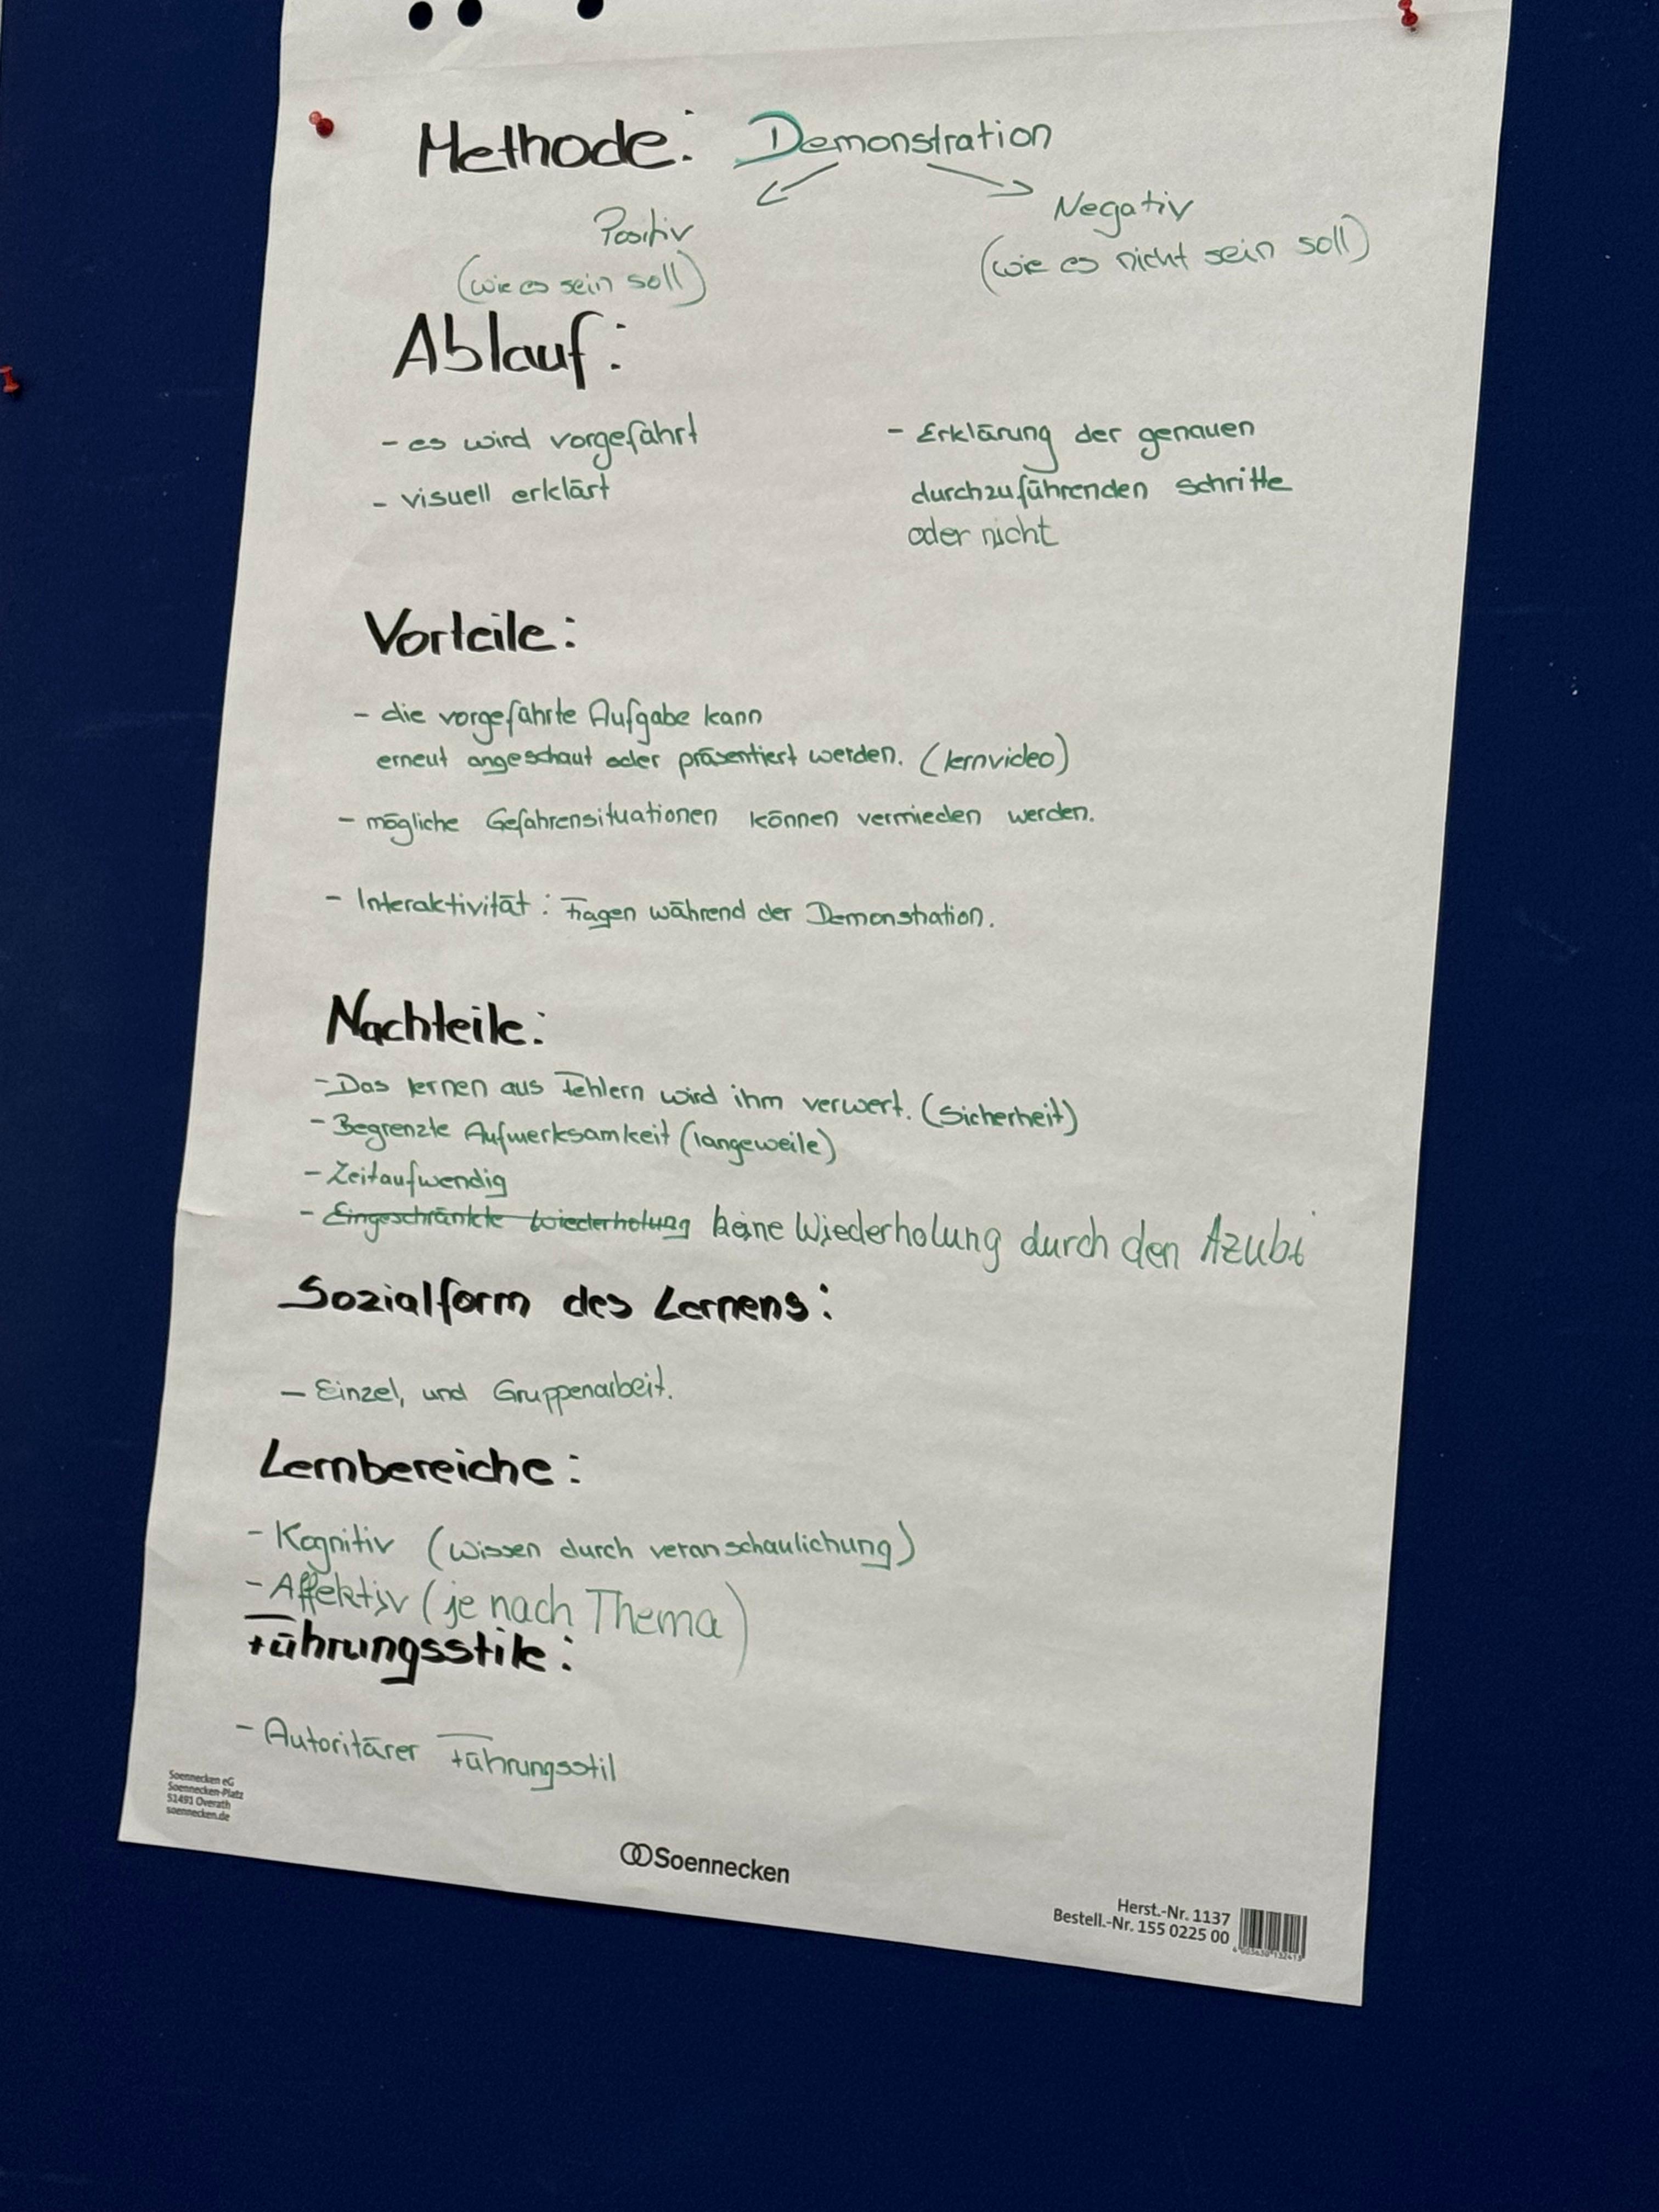 Methode: Demonstration
Positiv
(wie es sein soll)
Negativ
(wie es nicht sein soll)
Ablauf:
- es wird vorgefährt
- visuell erklärt
- Erklärung der genauen
durchzuführenden schritte
oder nicht
Vorteile:
- die vorgefährte Aufgabe kann
erneut angeschaut oder präsentiert werden. (lernvideo)
- mögliche Gefahrensituationen können vermieden werden.
- Interaktivität: Fragen während der Demonstration.
Nachteile:
- Das lernen aus Fehlern wird ihm verwert. (Sicherheit)
- Begrenzte Aufmerksamkeit (langeweile)
- Zeitaufwendig
- Eingeschränkte Wiederholung keine Wiederholung durch den Azubi
Sozialform des Lernens:
- Einzel, und Gruppenarbeit.
Lernbereiche:
- Kognitiv (wissen durch veranschaulichung)
- Affektiv (je nach Thema)
Führungsstile:
- Autoritärer Führungsstil
Soennecken eG
Soennecken-Platz
51491 Overath
soennecken.de
Soennecken
Herst.-Nr. 1137
Bestell.-Nr. 155 0225 00